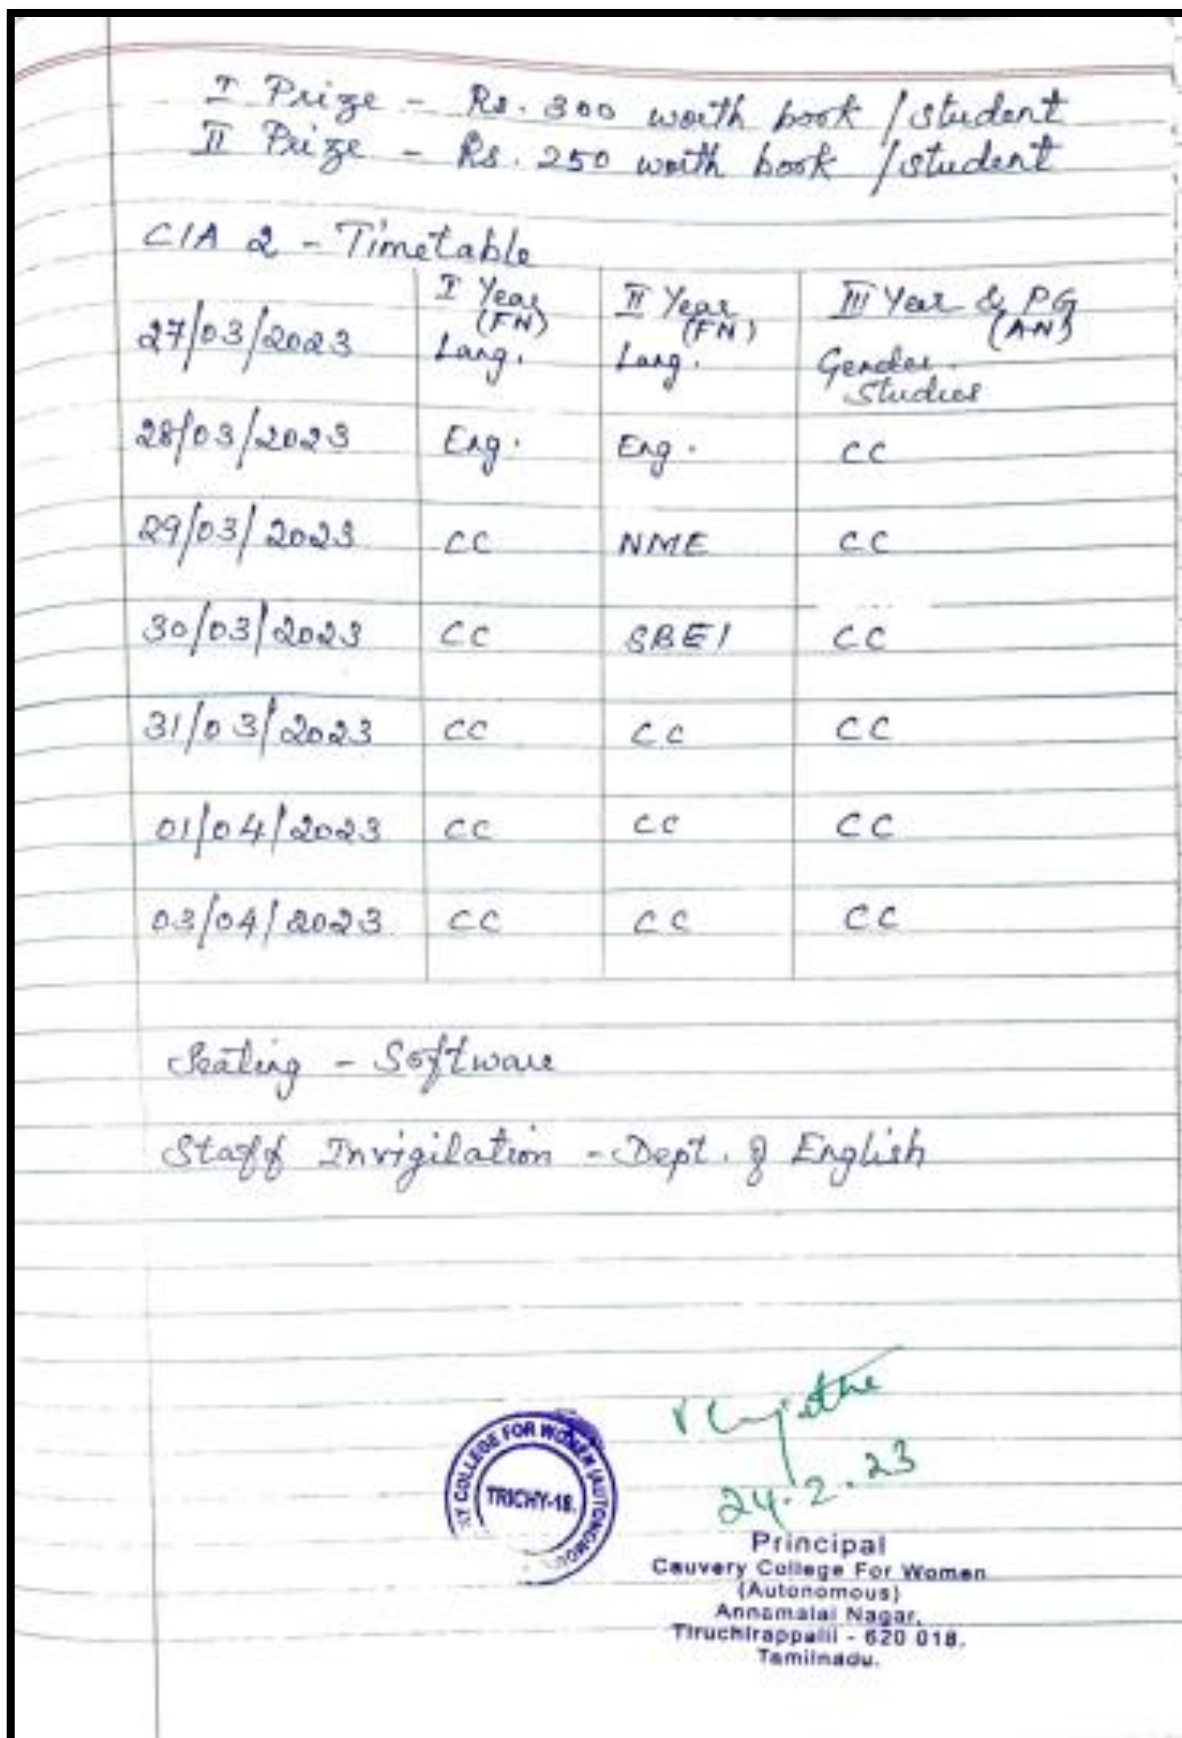 I Prize - Rs. 300 worth book / student
II Prize - Rs. 250 worth book / student
CIA 2 - Timetable
I Year (FN) II Year (FN) III Year & PG (AN)
27/03/2023 Lang. Lang. Gender Studies
28/03/2023 Eng. Eng. CC
29/03/2023 CC NME CC
30/03/2023 CC SBE1 CC
31/03/2023 CC CC CC
01/04/2023 CC CC CC
03/04/2023 CC CC CC
Seating - Software
Staff Invigilation - Dept. of English
24.2.23
COLLEGE FOR WOMEN (AUTONOMOUS)
TRICHY-18.
Principal
Cauvery College For Women
(Autonomous)
Annamalai Nagar,
Tiruchirappalli - 620 018.
Tamilnadu.